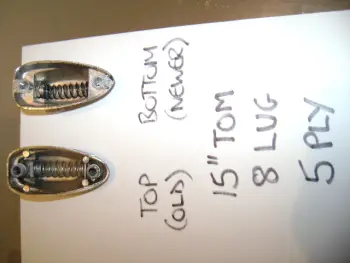 TOP
(OLD)
BOTTOM
(NEWER)
15" TOM
8 LUG
5 PLY